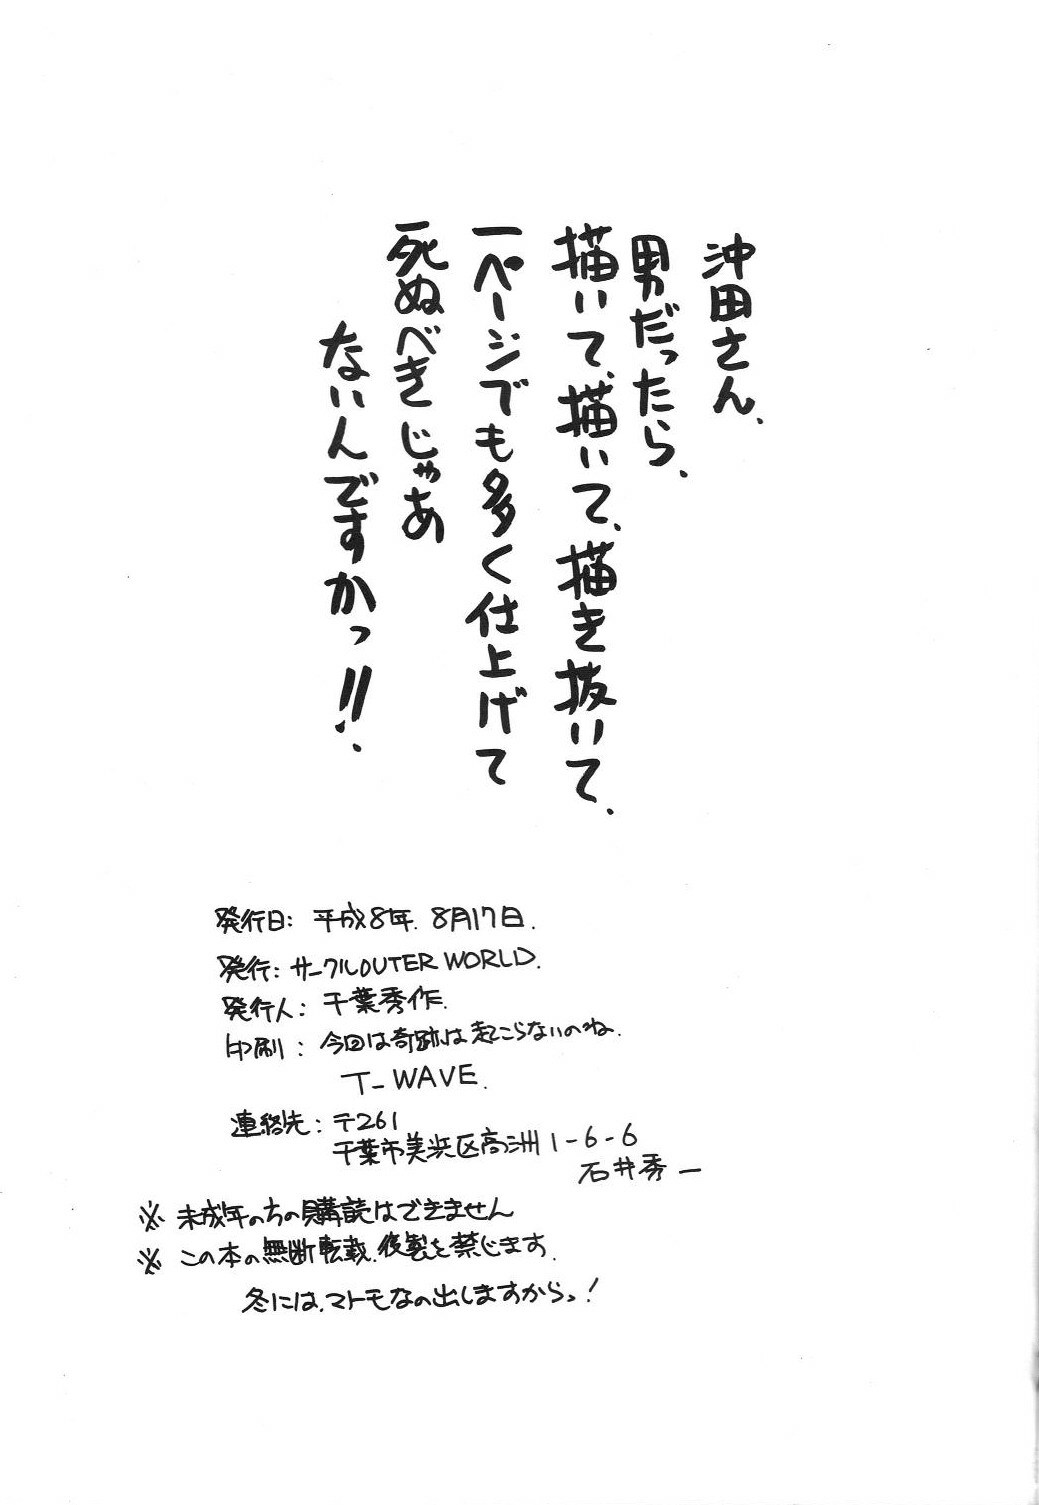 沖田さん、
男だったら、
描いて、描いて、描き抜いて、
一ページでも多く仕上げて
死ぬべきじゃあ
ないんですかっ!!
発行日: 平成8年. 8月17日.
発行: サークルOUTER WORLD.
発行人: 千葉秀作.
印刷: 今回は奇跡は起こらないのね.
T-WAVE.
連絡先: 〒261
千葉市美浜区高洲1-6-6
石井秀一
※ 未成年のちの購読はできません
※ この本の無断転載、複製を禁じます.
冬には、マトモなの出しますからっ!